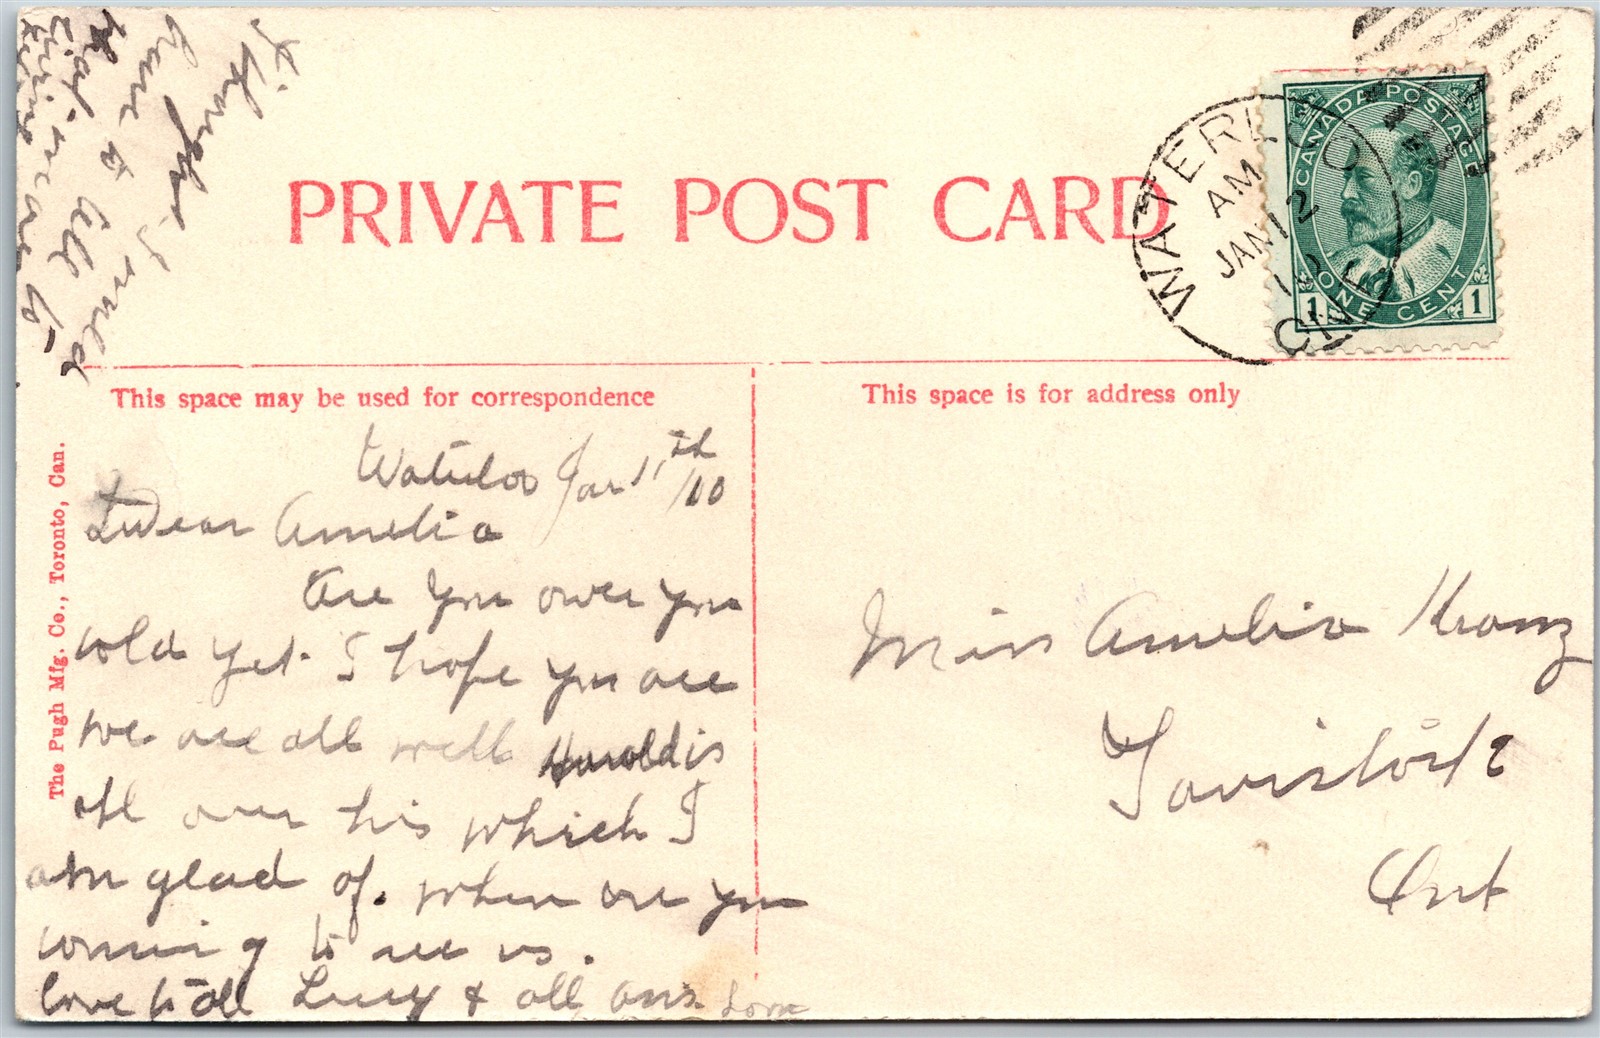 PRIVATE POST CARD
WATERLOO
AM
JAN 12
10
ONT
CANADA POSTAGE
1 ONE CENT 1
This space may be used for correspondence
This space is for address only
The Pugh Mfg. Co., Toronto, Can.
Waterloo Jan 11th/10
Dear Amelia
Are you over you
cold yet. I hope you are
we are all well Harold is
all over his which I
am glad of. when are you
coming to see us.
love to all Lucy & all ans
I thought I would
have to
Miss Amelia Kranz
Tavistock
Ont